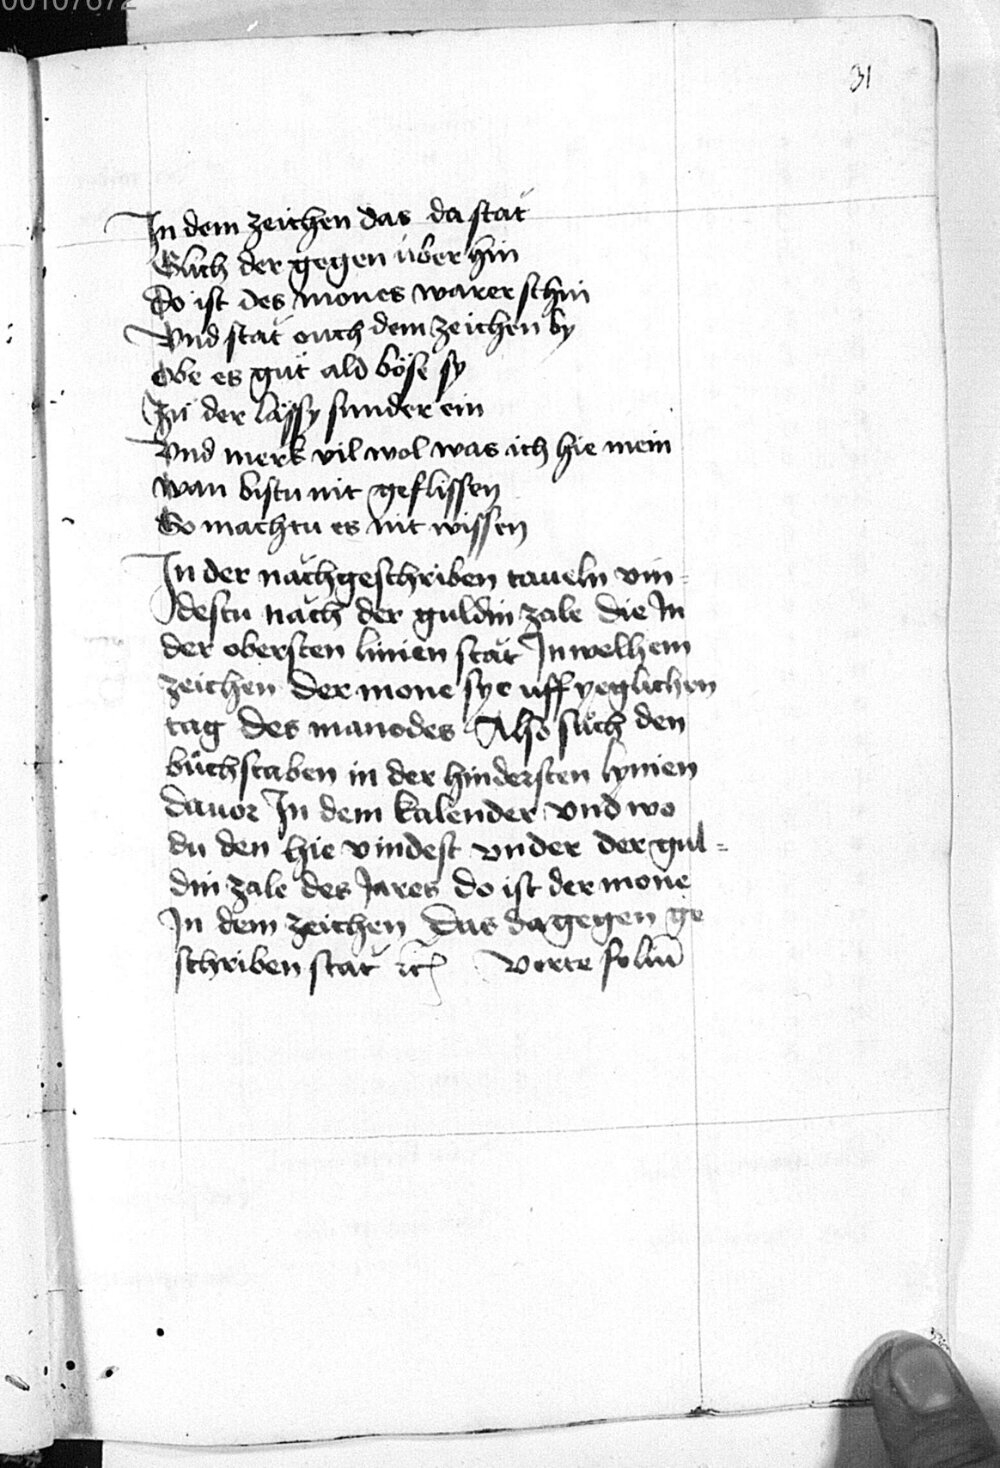 00107672
31
In dem zeichen das da stät
Glich der gegen über hin
So ist des mones warer schin
Vnd stät ouch dem zeichen by
Obe es güt ald böse sy
Zü der lässy sunder ein
Vnd merk vil wol was ich hie mein
wan bistu nit geflissen
So machtu es nit wissen
In der nächgeschriben taueln vin=
destu näch der guldin zale die In
der obersten linien stät In welhem
zeichen der mone sye uff yeglichen
tag des manodes Also süch den
büchstaben in der hindersten lynien
dauor In dem kalender vnd wo
du den hie vindest vnder der gul=
din zale des Jares do ist der mone
In dem zeichen Das da gegen ge
schriben stät etc verte foliū